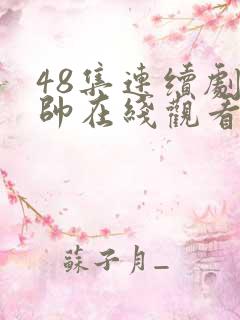 48集連續劇
帥在綫觀看
蘇子月_